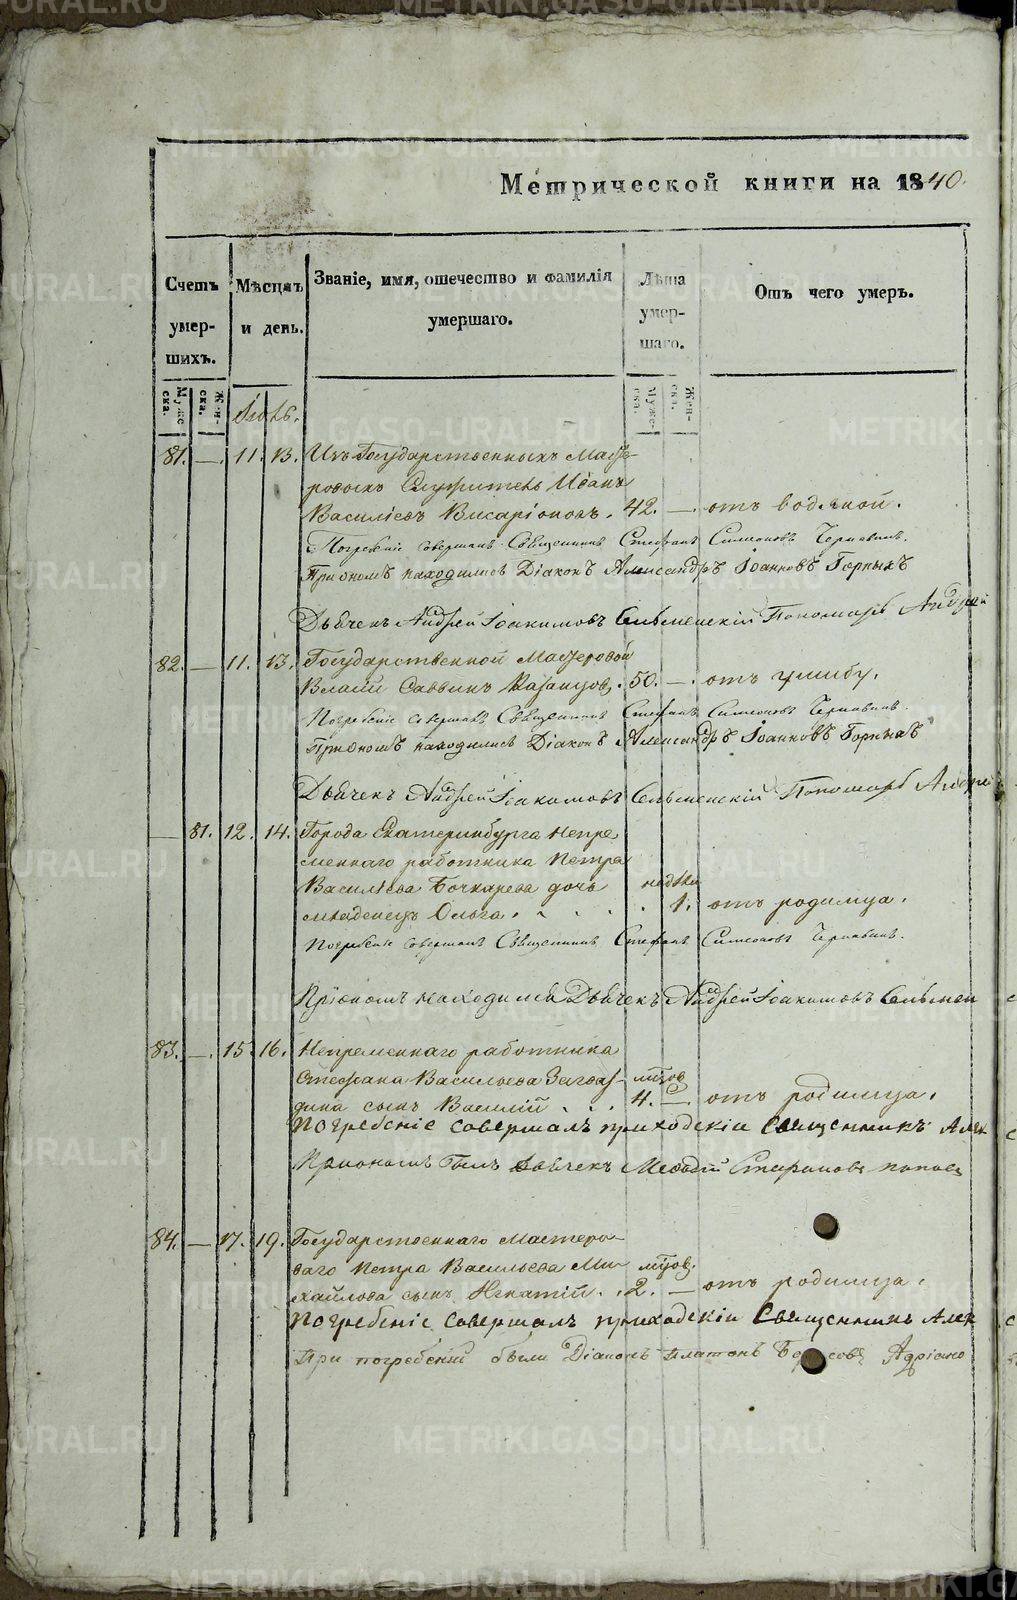 Метрической книги на 1840.
Счетъ умер-шихъ.
Мѣсяцъ и день.
Званіе, имя, отечество и фамилія умершаго.
Лѣта умер-шаго.
Отъ чего умеръ.
Муже-ска.
Жен-ска.
Муже-ска.
Жен-ска.
81. — 11. 13. Изъ Государственныхъ Масте-
ровыхъ Служитель Иванъ
Василіевъ Висаріоновъ. 42. — отъ водяной.
Погребеніе совершалъ Священникъ Стефанъ Симеоновъ Чернавинъ.
При ономъ находились Діаконъ Александръ Іоанновъ Горныхъ
Дьячекъ Андрей Іоакимовъ Сельменскій Пономарь Андрей
82. — 11. 13. Государственной Мастеровой
Власій Саввинъ Казанцовъ. 50. — отъ ушибу.
Погребеніе совершалъ Священникъ Стефанъ Симеоновъ Чернавинъ.
При ономъ находились Діаконъ Александръ Іоанновъ Горныхъ
Дьячекъ Андрей Іоакимовъ Сельменскій Пономарь Андрей
— 81. 12. 14. Города Екатеринбурга Непре
меннаго работника Петра
Василіева Бочкарева дочь недѣли
младенецъ Ольга. 1. отъ родимца.
Погребеніе совершалъ Священникъ Стефанъ Симеоновъ Чернавинъ.
При ономъ находился Дьячекъ Андрей Іоакимовъ Сельмен
83. — 15. 16. Непременнаго работника
Стефана Васильева
сынъ Василій . . . 4. — отъ родимца.
Погребеніе совершалъ приходскій Священникъ Алек
При ономъ былъ Дьячекъ Мефодій Стефановъ Поповъ
84. — 17. 19. Государственнаго Мастеро-
ваго Петра Васильева Ми-
хайлова сынъ Игнатій. . 2. — отъ родимца.
Погребеніе совершалъ приходскій Священникъ Алек
При погребеніи были Діаконъ Платонъ Адріано
METRIKI.GASO-URAL.RU